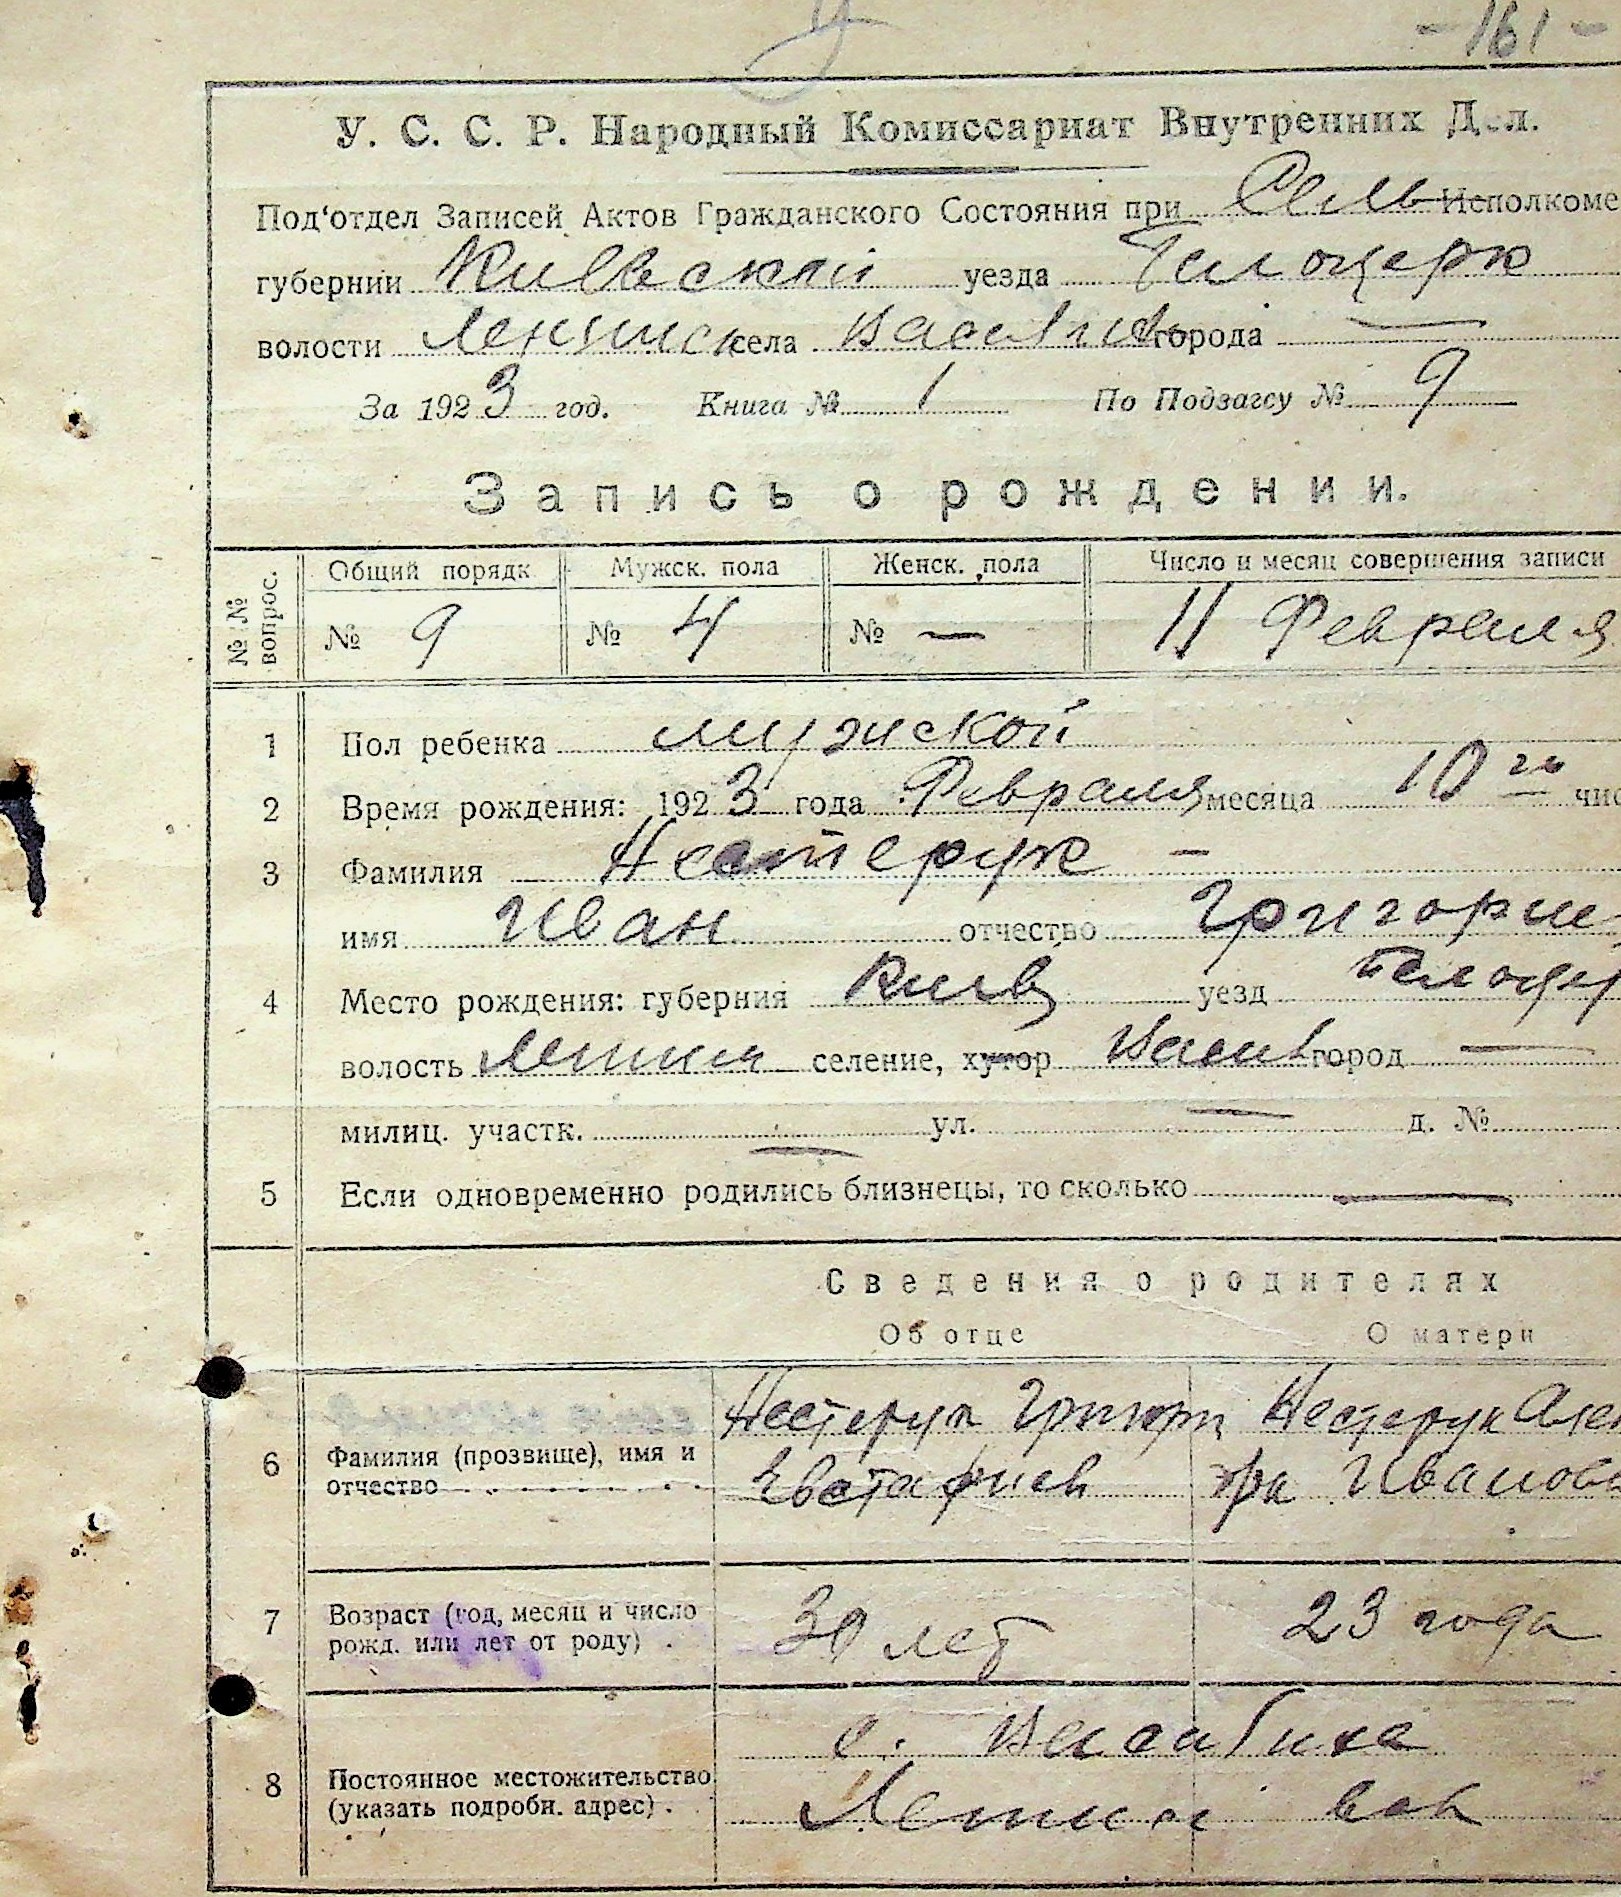 - 161 -
У. С. С. Р. Народный Комиссариат Внутренних Дел.
Под'отдел Записей Актов Гражданского Состояния при Сель Исполкоме
губернии Киевской уезда Белоцерк
волости села города —
За 1923 год. Книга № 1 По Подзагсу № 9
Запись о рождении.
№ № вопрос. Общий порядк Мужск. пола Женск. пола Число и месяц совершения записи
№ 9 № 4 № — 11 Февраля
1 Пол ребенка мужской
2 Время рождения: 1923 года Февраля месяца 10 го чис
3 Фамилия Нестерук —
имя Иван отчество Григорие
4 Место рождения: губерния Киев уезд Белоцер
волость селение, хутор Васил город —
милиц. участк. — ул. — д. №
5 Если одновременно родились близнецы, то сколько —
Сведения о родителях
Об отце О матери
6 Фамилия (прозвище), имя и отчество
Нестерук Григори Нестерук Алек
Евстафиев Ивановн
7 Возраст (год, месяц и число рожд. или лет от роду)
30 лет 23 года
8 Постоянное местожительство (указать подробн. адрес)
с.
вол